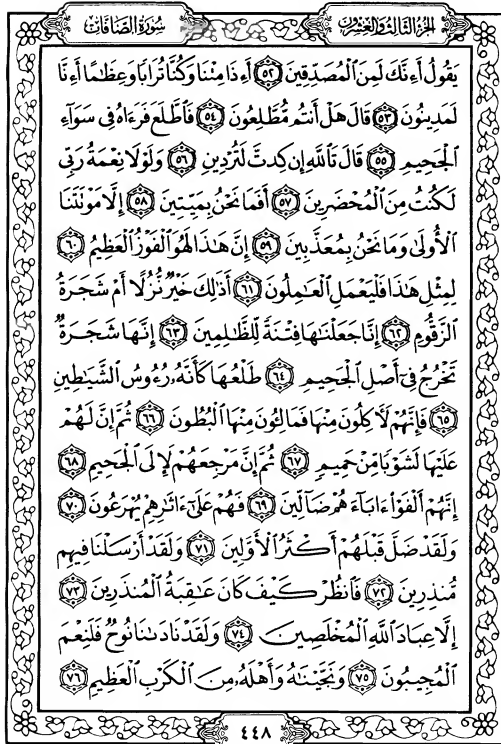 سُورَةُ الصَّافَّاتِ
الجُزْءُ الثَّالِثُ وَالْعِشْرُونَ
يَقُولُ أَءِنَّكَ لَمِنَ ٱلْمُصَدِّقِينَ ٥٢ أَءِذَا مِتْنَا وَكُنَّا تُرَابًا وَعِظَٰمًا أَءِنَّا
لَمَدِينُونَ ٥٣ قَالَ هَلْ أَنتُم مُّطَّلِعُونَ ٥٤ فَٱطَّلَعَ فَرَءَاهُ فِى سَوَآءِ
ٱلْجَحِيمِ ٥٥ قَالَ تَٱللَّهِ إِن كِدتَّ لَتُرْدِينِ ٥٦ وَلَوْلَا نِعْمَةُ رَبِّى
لَكُنتُ مِنَ ٱلْمُحْضَرِينَ ٥٧ أَفَمَا نَحْنُ بِمَيِّتِينَ ٥٨ إِلَّا مَوْتَتَنَا
ٱلْأُولَىٰ وَمَا نَحْنُ بِمُعَذَّبِينَ ٥٩ إِنَّ هَٰذَا لَهُوَ ٱلْفَوْزُ ٱلْعَظِيمُ ٦٠
لِمِثْلِ هَٰذَا فَلْيَعْمَلِ ٱلْعَٰمِلُونَ ٦١ أَذَٰلِكَ خَيْرٌ نُّزُلًا أَمْ شَجَرَةُ
ٱلزَّقُّومِ ٦٢ إِنَّا جَعَلْنَٰهَا فِتْنَةً لِّلظَّٰلِمِينَ ٦٣ إِنَّهَا شَجَرَةٌ
تَخْرُجُ فِىٓ أَصْلِ ٱلْجَحِيمِ ٦٤ طَلْعُهَا كَأَنَّهُۥ رُءُوسُ ٱلشَّيَٰطِينِ
٦٥ فَإِنَّهُمْ لَءَاكِلُونَ مِنْهَا فَمَالِـُٔونَ مِنْهَا ٱلْبُطُونَ ٦٦ ثُمَّ إِنَّ لَهُمْ
عَلَيْهَا لَشَوْبًا مِّنْ حَمِيمٍ ٦٧ ثُمَّ إِنَّ مَرْجِعَهُمْ لَإِلَى ٱلْجَحِيمِ ٦٨
إِنَّهُمْ أَلْفَوْا۟ ءَابَآءَهُمْ ضَآلِّينَ ٦٩ فَهُمْ عَلَىٰٓ ءَاثَٰرِهِمْ يُهْرَعُونَ ٧٠
وَلَقَدْ ضَلَّ قَبْلَهُمْ أَكْثَرُ ٱلْأَوَّلِينَ ٧١ وَلَقَدْ أَرْسَلْنَا فِيهِم
مُّنذِرِينَ ٧٢ فَٱنظُرْ كَيْفَ كَانَ عَٰقِبَةُ ٱلْمُنذَرِينَ ٧٣
إِلَّا عِبَادَ ٱللَّهِ ٱلْمُخْلَصِينَ ٧٤ وَلَقَدْ نَادَىٰنَا نُوحٌ فَلَنِعْمَ
ٱلْمُجِيبُونَ ٧٥ وَنَجَّيْنَٰهُ وَأَهْلَهُۥ مِنَ ٱلْكَرْبِ ٱلْعَظِيمِ ٧٦
٤٤٨